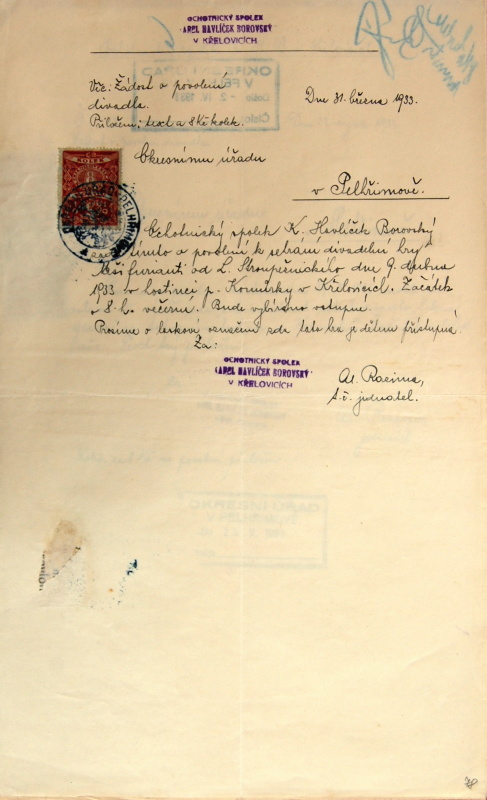 OCHOTNICKÝ SPOLEK
KAREL HAVLÍČEK BOROVSKÝ
V KŘELOVICÍCH
Věc: Žádost o povolení
divadla.
Přiloženi: text a 8 Kč kolek.
Dne 31. března 1933.
Okresnímu úřadu
v Pelhřimově.
Ochotnický spolek K. Havlíček Borovský
o povolení k sehrání divadelní hry
Naši furianti od L. Stroupežnického dne 9. dubna
1933 v hostinci p. v Křelovicích. Začátek
v 8. h. večerní. Bude vybíráno vstupné.
Prosíme o laskavé označení zda tato hra je dětem přístupná.
Za:
OCHOTNICKÝ SPOLEK
KAREL HAVLÍČEK BOROVSKÝ
V KŘELOVICÍCH
t.č. jednatel.
78